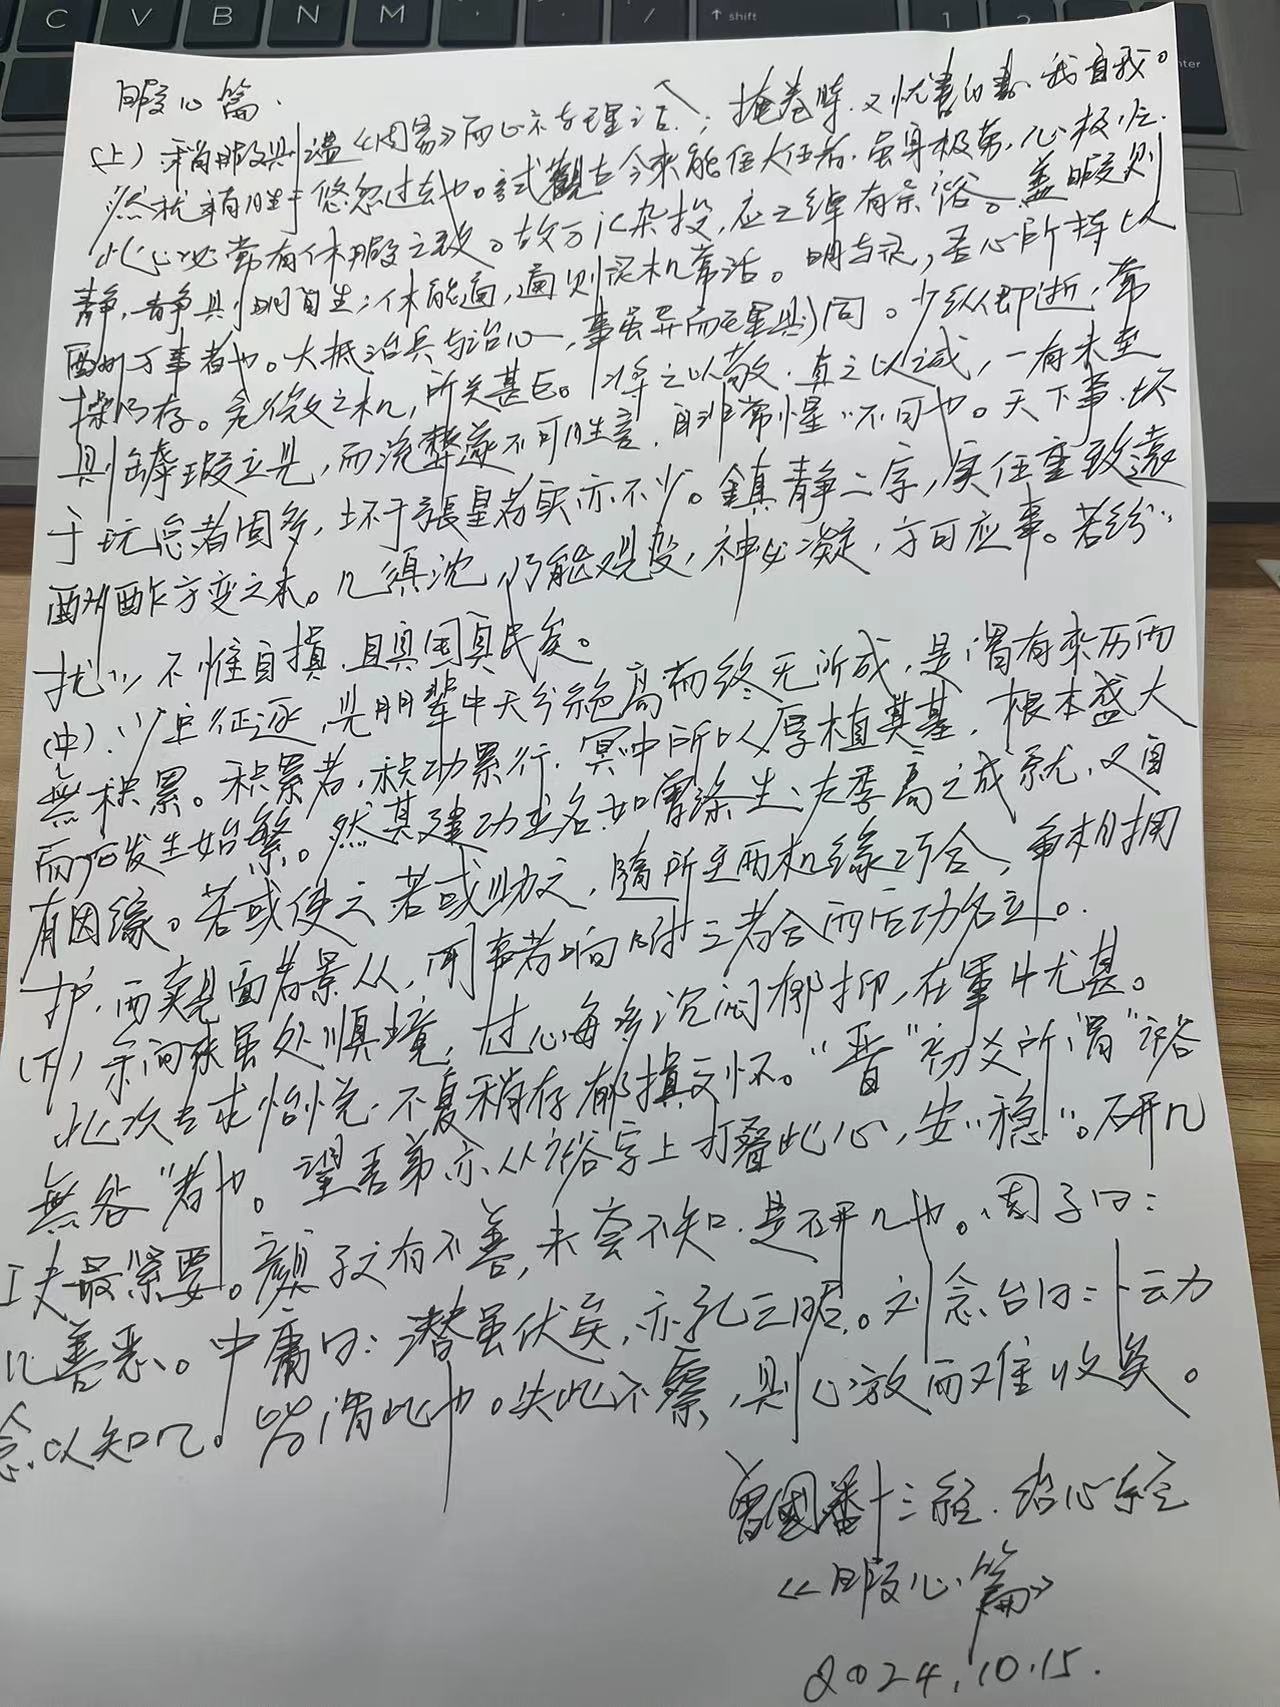 暇心篇.
(上)稍暇則温《周易》而心不与理洽;掩卷時.又忧善自善.我自我。
然就有胜于悠忽过去也。试觀古今来能任大任者.虽身极劳,心极忙.
此心必常有休暇之致。故万汇杂投,应之绰有余裕。盖暇则
靜,静則明自生;休能通,通则灵机常活。明与灵,吾心所持以
酬万事者也。大抵治兵与治心,事虽异而理則同。少纵即逝,常
操乃存。危微之机,所关甚巨。将之以敬.直之以诚,一有未至
則罅瑕立見,而流弊遂不可胜言.自非常惺〃不可也。天下事.坏
于玩忽者固多,坏于張皇者实亦不少。鎮静二字,实任重致遠
酬酢万变之本。几須沈,乃能观变,神必凝,方可应事。若纷〃
扰〃不惟自損.且異国異民矣。
(中).少年征逐,見朋輩中天分絕高而终无所成,是谓有来历而
無积累。积累者,积功累行.冥中所以厚植其基.根本盛大
而后发生始繁。然其建功立名.如曾涤生、左季高之成就,又自
有因缘。若或使之若或助之,隨所至而机缘巧合,争相拥
护.而卖見面者景从,闻事者响附.三者合而后功名立。
(下)余向来虽处順境,过心每多沉闷郁抑,在軍中尤甚。
此次专求怡悦.不复稍存郁損之怀。“晋”初爻所謂“裕
無咎”者也。望吾弟亦从裕字上打疊此心,安〃稳〃。研几
工夫最緊要。顏子之有不善,未尝不知.是研几也。周子曰:
几善恶。中庸曰:潜虽伏矣,亦孔之昭。刘念台曰:卜动
念以知几。皆谓此也。失此不察,则心放而难收矣。
曾國藩十三經.治心經
《暇心篇》
2024.10.15.